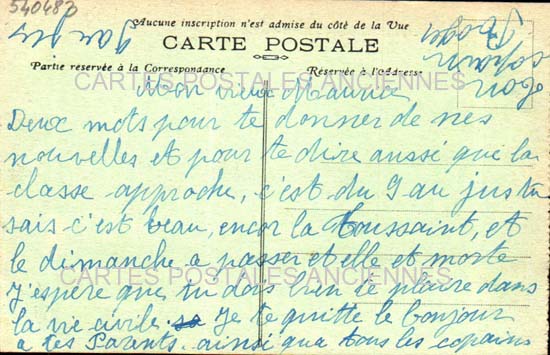 540483
Aucune inscription n'est admise du côté de la Vue
CARTE POSTALE
Partie réservée à la Correspondance
Réservée à l'Adresse
CARTES POSTALES ANCIENNES
Mon vieux Maurice
Deux mots pour te donner de mes
nouvelles et pour te dire aussi que la
classe approche, c'est du 9 au jus tu
sais c'est beau, encor la Toussaint, et
le dimanche a passer et elle et morte
CARTES POSTALES ANCIENNES
J'espère que tu dois bien te plaire dans
la vie civile. Je te quitte le bonjour
a tes Parents. ainsi qua tous les copains
Ton
copain
Roger